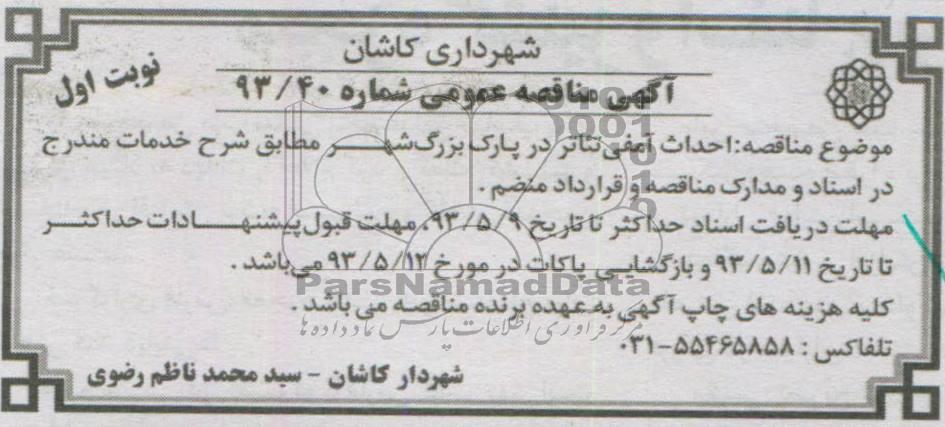 شهرداری کاشان
نوبت اول
آگهی مناقصه عمومی شماره ۹۳/۴۰
موضوع مناقصه:احداث آمفی تئاتر در پارک بزرگ شهر مطابق شرح خدمات مندرج
در اسناد و مدارک مناقصه و قرارداد منضم .
مهلت دریافت اسناد حداکثر تا تاریخ ۹۳/۵/۹، مهلت قبول پیشنهادات حداکثر
تا تاریخ ۹۳/۵/۱۱ و بازگشایی پاکات در مورخ ۹۳/۵/۱۲ می باشد .
ParsNamadData
کلیه هزینه های چاپ آگهی به عهده برنده مناقصه می باشد .
مرکز فرآوری اطلاعات پارس نماد داده ها
تلفاکس : ۵۵۴۶۵۸۵۸-۰۳۱
شهردار کاشان - سید محمد ناظم رضوی